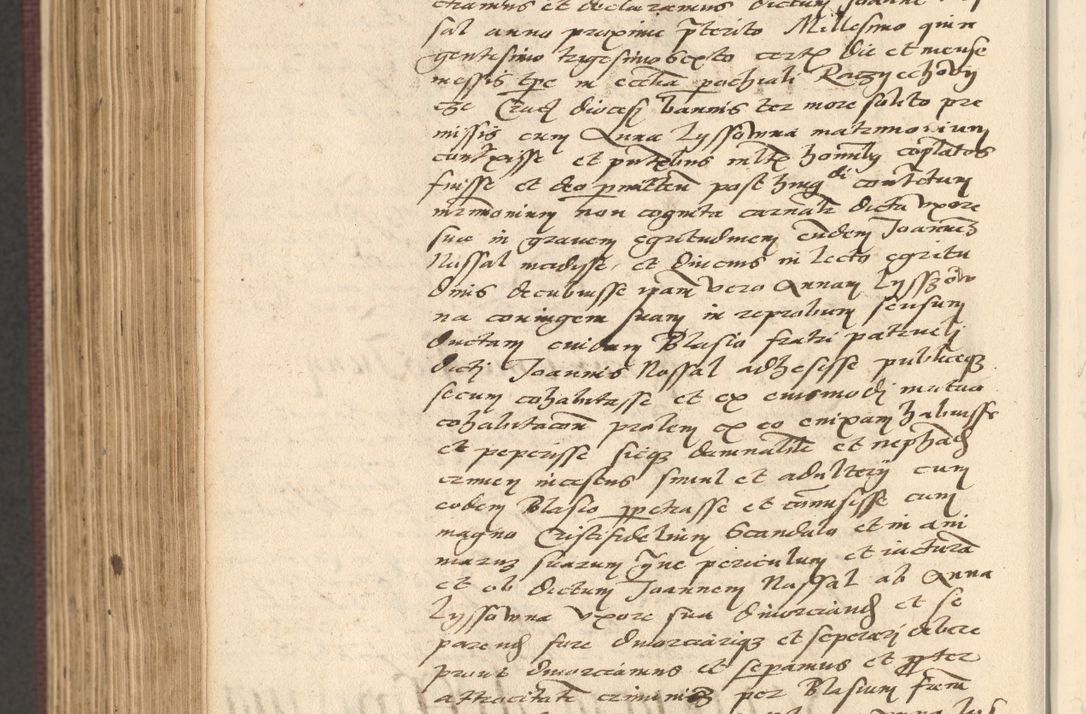 cramus et declaramus dictum Joanne
sal anno proximi p̄terito Millesimo quin
gentesimo trigesimo sexto certis die et mense
messis tp̄e in ecclīa pochiali Raczyechow
Crac̄ diocesj bannis ter more solito pre
missis cum Anna Lyssowna matrimonium
contraxisse et hominibus coplatos
fuisse et deo permitten̄ post huiq̄ di contractum
mr̄imonium non cognita carnalr̄ dicta vxore
sua in gravem egritudinem eundem Joannez
Nassal incidisse, et diucius in lecto egritu
dinis decubuisse ip̄am vero Annam Lysszow
na coniugem suam in reprobum sensum
ductam cuidam Blasio fratri patruelj
dictj Joannis Nassal adhesisse publiceq3
secum cohabitasse et ex eiusmodj mutua
cohabitac̄on̄ prolem ex eo enixam habuisse
et peperisse sicq3 damnabilr̄ et nephand̄
crimen incestus simul et adulterij cum
eodem Blasio ppetrasse et com̄isisse cum
magno Cristifidelium Scandalo et in ani
marum suarum q̄ne periculum et iacturā
et ob dictum Joannem Nassal ab Anna
Lyssowna vxore sua divorciand̄ et se
parand̄ fore divorciariq3 et seperarj debere
prout divorciamus et separamus et ppter
attrocitatē criminis per Blasium